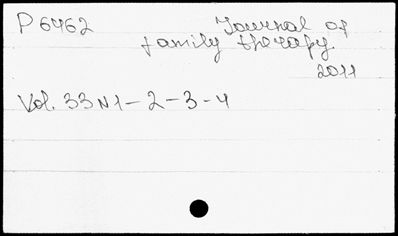 P 6462 Journal of
family therapy.
2011
Vol. 33 N1 - 2 - 3 - 4